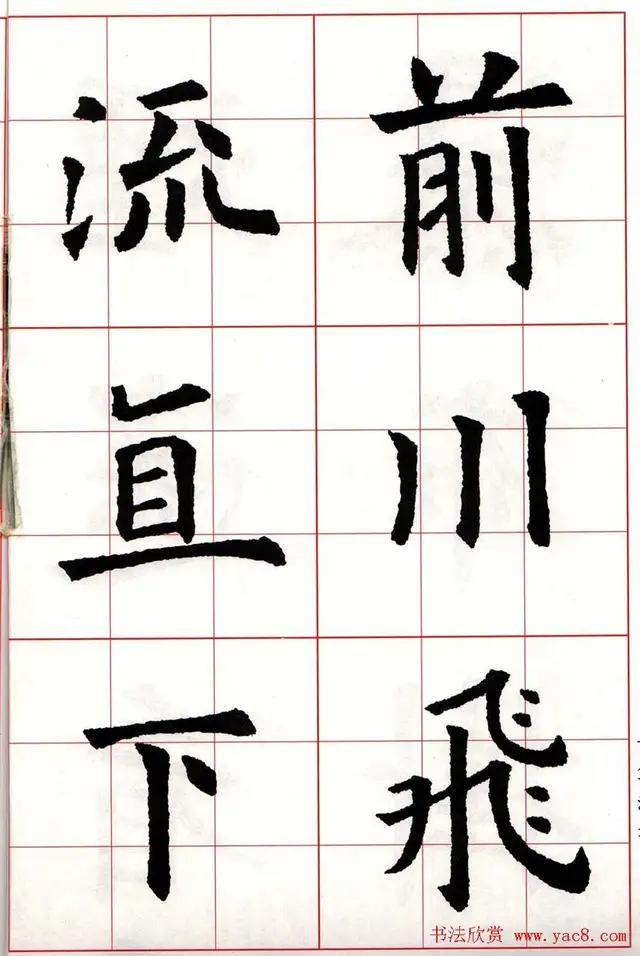 前川飛
流直下
书法欣赏 www.yac8.com